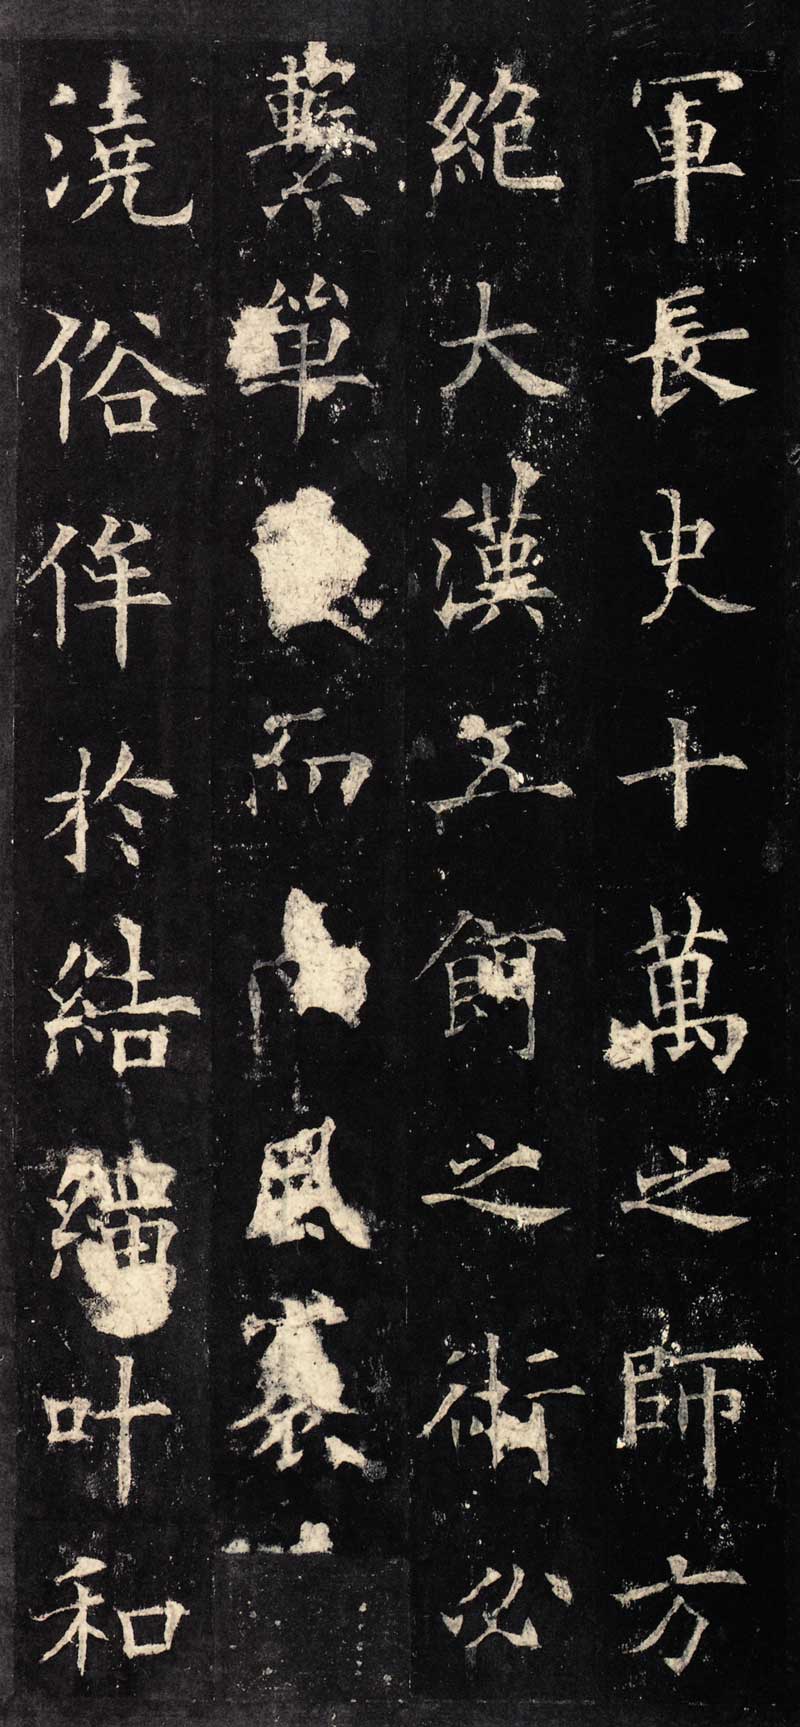 軍長史十萬之師方
絶大漢五餌之術必
繫單而風
澆俗侔於結繩叶和